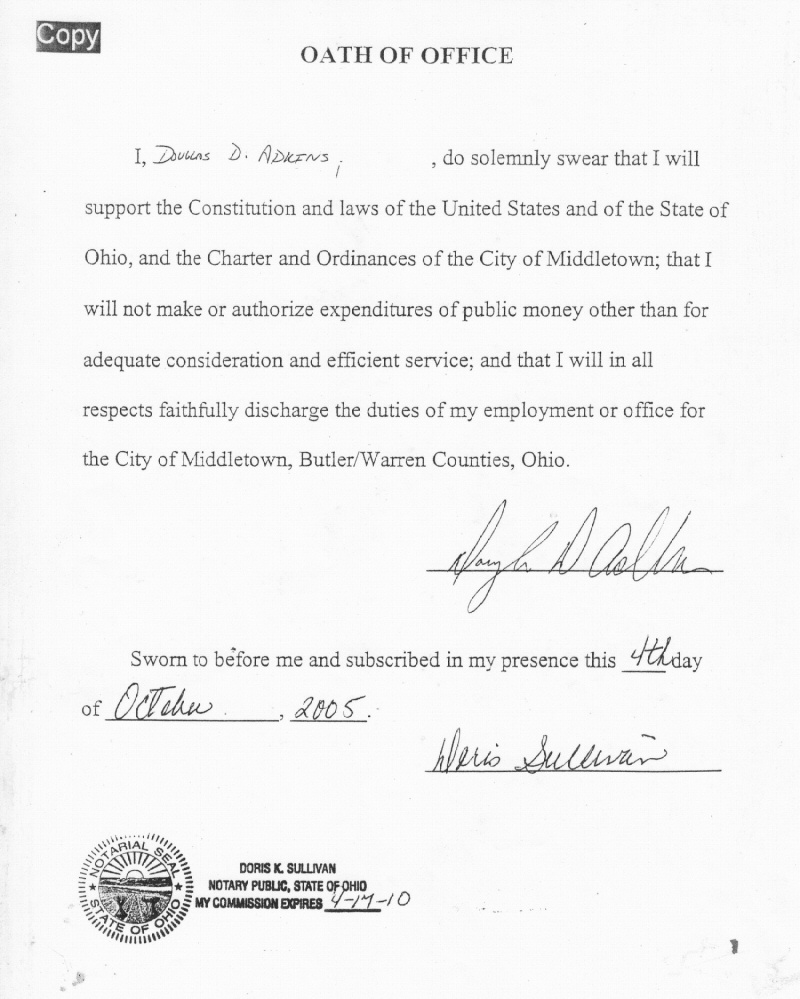 Copy
OATH OF OFFICE
I, Douglas D. Adkins, , do solemnly swear that I will
support the Constitution and laws of the United States and of the State of
Ohio, and the Charter and Ordinances of the City of Middletown; that I
will not make or authorize expenditures of public money other than for
adequate consideration and efficient service; and that I will in all
respects faithfully discharge the duties of my employment or office for
the City of Middletown, Butler/Warren Counties, Ohio.
Sworn to before me and subscribed in my presence this 4th day
of October, 2005.
Doris Sullivan
NOTARIAL SEAL
STATE OF OHIO
DORIS K. SULLIVAN
NOTARY PUBLIC, STATE OF OHIO
MY COMMISSION EXPIRES 4-17-10